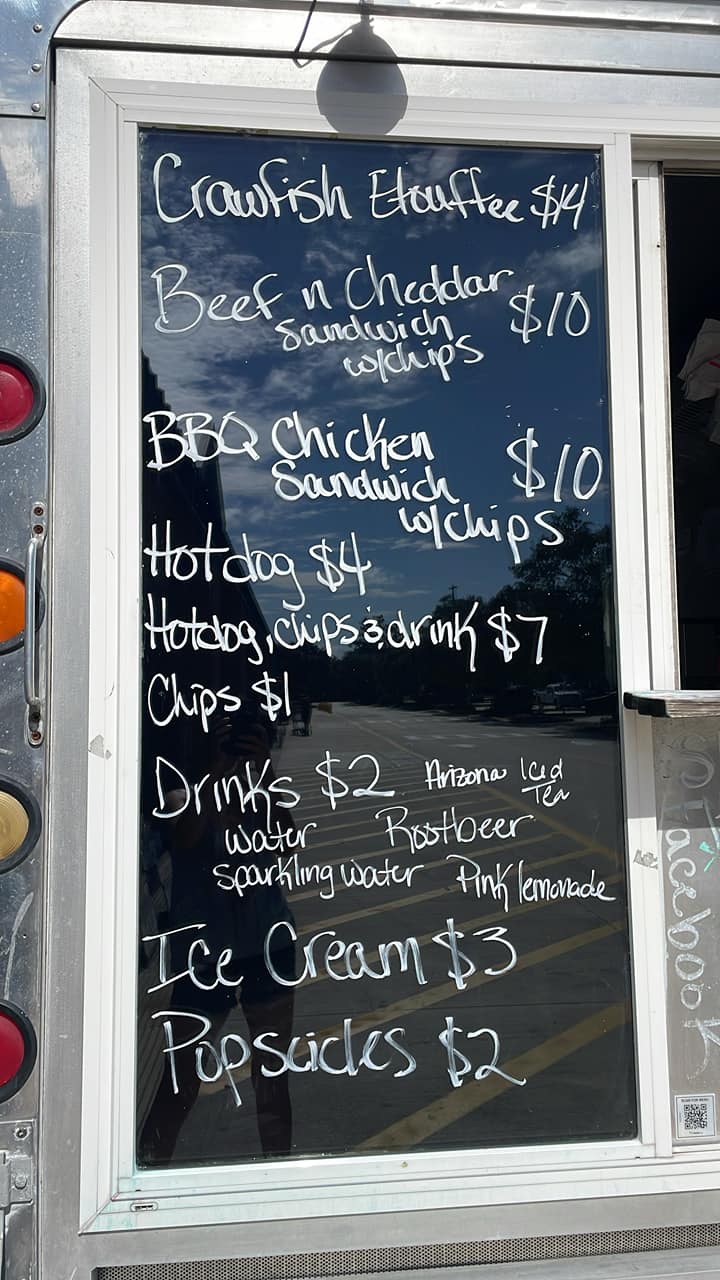 Crawfish Etouffee $14
Beef n Cheddar $10
Sandwich
w/chips
BBQ Chicken $10
Sandwich
w/chips
Hotdog $4
Hotdog, chips & drink $7
Chips $1
Drinks $2 Arizona Iced
Tea
water Rootbeer
sparkling water Pink lemonade
Ice Cream $3
Popscicles $2
facebook
SCAN FOR MENU